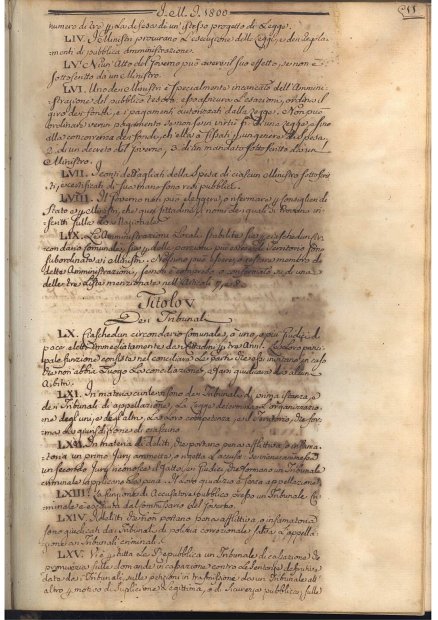 I. M. I. 1800
numero di tre p. la difesa de' un' istesso progetto di Legge.
LIV. I Ministri procurano l'esecuzione delle Leggi, e dei Regola-
menti di pubblica amministrazione.
LV. Niun' Atto del Governo può avere il suo effetto, se non è
sottoscritto da un Ministro.
LVI. Uno dei Ministri è specialmente incaricato dell' Ammini-
strazione del pubblico tesoro: assicura l'esazioni, ordina il
giro dei fondi, e i pagamenti autorizati dalla Legge. Non può
ordinar verun pagamento se non se in virtù p.° di una Legge, e fino
alla concorrenza dei fondi, ch' ella à fissati p. un genere di spesa
2. di un decreto del Governo, 3. di un mandato sottoscritto da un
Ministro.
LVII. I conti dettagliati della Spesa di ciascun Ministro sottoscrit-
ti, e certificati di sua mano sono resi pubblici.
LVIII. Il Governo non può eleggere, o conservare p. consiglieri di
Stato, e p. Ministri, che quei cittadini, i nomi de' quali si trovino in-
scritti sulla lista Nazionale.
LIX. Le Amministrazioni Locali stabilite sia p. ciaschedun cir-
condario comunale, sia p. delle porzioni più estese del Territorio sono
subordinate ai Ministri. Nessuno può essere, o restare membro di
dette Amministrazioni, se non è compreso, o conservato su di una
delle tre liste menzionate nell' Articoli
Titolo V.
Dei Tribunali
LX. Ciaschedun circondario comunale, à uno, o più Giudici di
pace eletti immediatamente dai Cittadini p. tre Anni. La loro princi-
pale funzione consiste nel conciliare le parti, che essi invitano in caso
che non abbia luogo la conciliazione, a farsi giudicare da alcuni
Arbitri.
LXI. In materia civile vi sono dei Tribunali di prima istanza, e
dei Tribunali di appellazione, la Legge determina l'organizzazio-
ne degl' uni, e degl' altri, la loro competenza, e il Territorio, che for-
ma la giurisdizione di ciascuno.
LXII. In materia di delitti, che portano pena afflittiva, o infama-
toria un primo Jurì ammette, o rigetta l'accusa: se viene ammessa
un secondo Jurì riconosce il fatto, e i Giudici, che formano un Tribunale
criminale applicano la pena. Il loro giudizio è senza appellazione.
LXIII. La funzione di Accusatore pubblico presso un Tribunale Cri-
minale è esercitata dal Commissario del Governo.
LXIV. I delitti che non portano pena afflittiva, o infamatoria
sono giudicati dai Tribunali di polizia correzionale salva l'appella-
zione ai Tribunali criminali.
LXV. Vi è p. tutta la Repubblica un Tribunale di cassazione che
pronunzia sulle domande in cassazione contro le sentenze definite
date dai Tribunali, sulle petizioni in trasmissione da un Tribunale all'
altro p. motivo di suspizione legittima, o di sicurezza pubblica, sulle